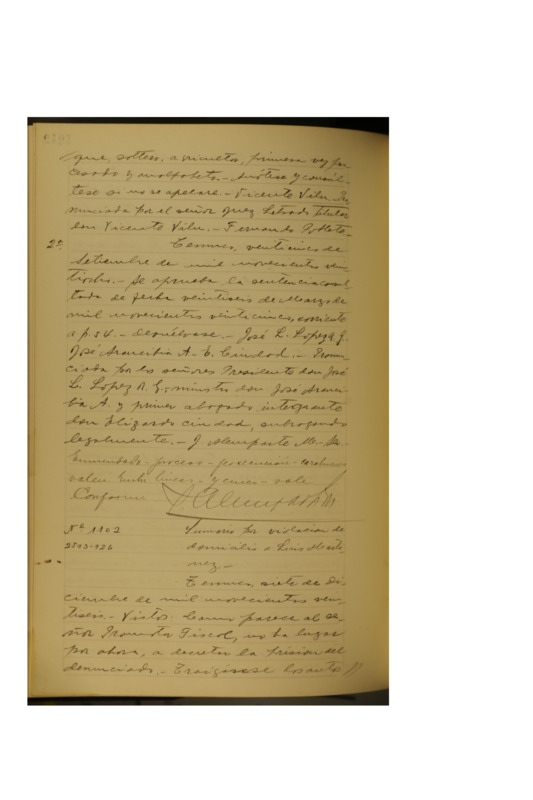 que, soltero, agricultor, primera vez pro-
cesado y analfabeto.- Anótese y consúl-
tese si no se apelare.- Vicente Vilu. Pro
nunciada por el señor Juez Letrado titular
don Vicente Vilu.- Fernando Poblete.-
2ª. Temuco, veinticinco de
Setiembre de mil novecientos vein
tiocho.- Se aprueba la sentencia consul
tada de fecha veintiseis de Marzo de
mil novecientos veinticinco, corriente
a p. 54.- Devuélvase.- José L. Lopez R. G.
José Arancibia A.- E. Ciudad.- Pronun
ciada por los señores Presidente don José
L. Lopez R. G.; ministro don José Aranci
bia A. y primer abogado integrante
don Elizardo Ciudad, subrogando
legalmente.- J. Alemparte M.-
Enmendado - proceso -
valen Entre lineas - y cinco - vale
Conforme
Nº 1102 Sumario por violacion de
domicilio a Luis Martí
nez.-
Temuco, siete de Di-
ciembre de mil novecientos vein
tiseis.- Vistos: Como parece al se-
ñor Promotor Fiscal, no ha lugar
por ahora, a decretar la prision del
denunciado.- Traíganse los autos //